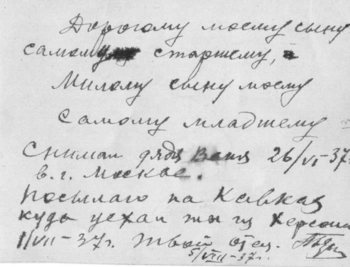 Дорогому моему сыну
самому старшему, и
Милому сыну моему
Самому младшему
Снимал дядя Ваня 26/VI-37.
в г. Москве.
Посылаю на Кавказ
куда уехал ты из Херсона
1/VII-37г. Твой отец.
5/VII-37г.